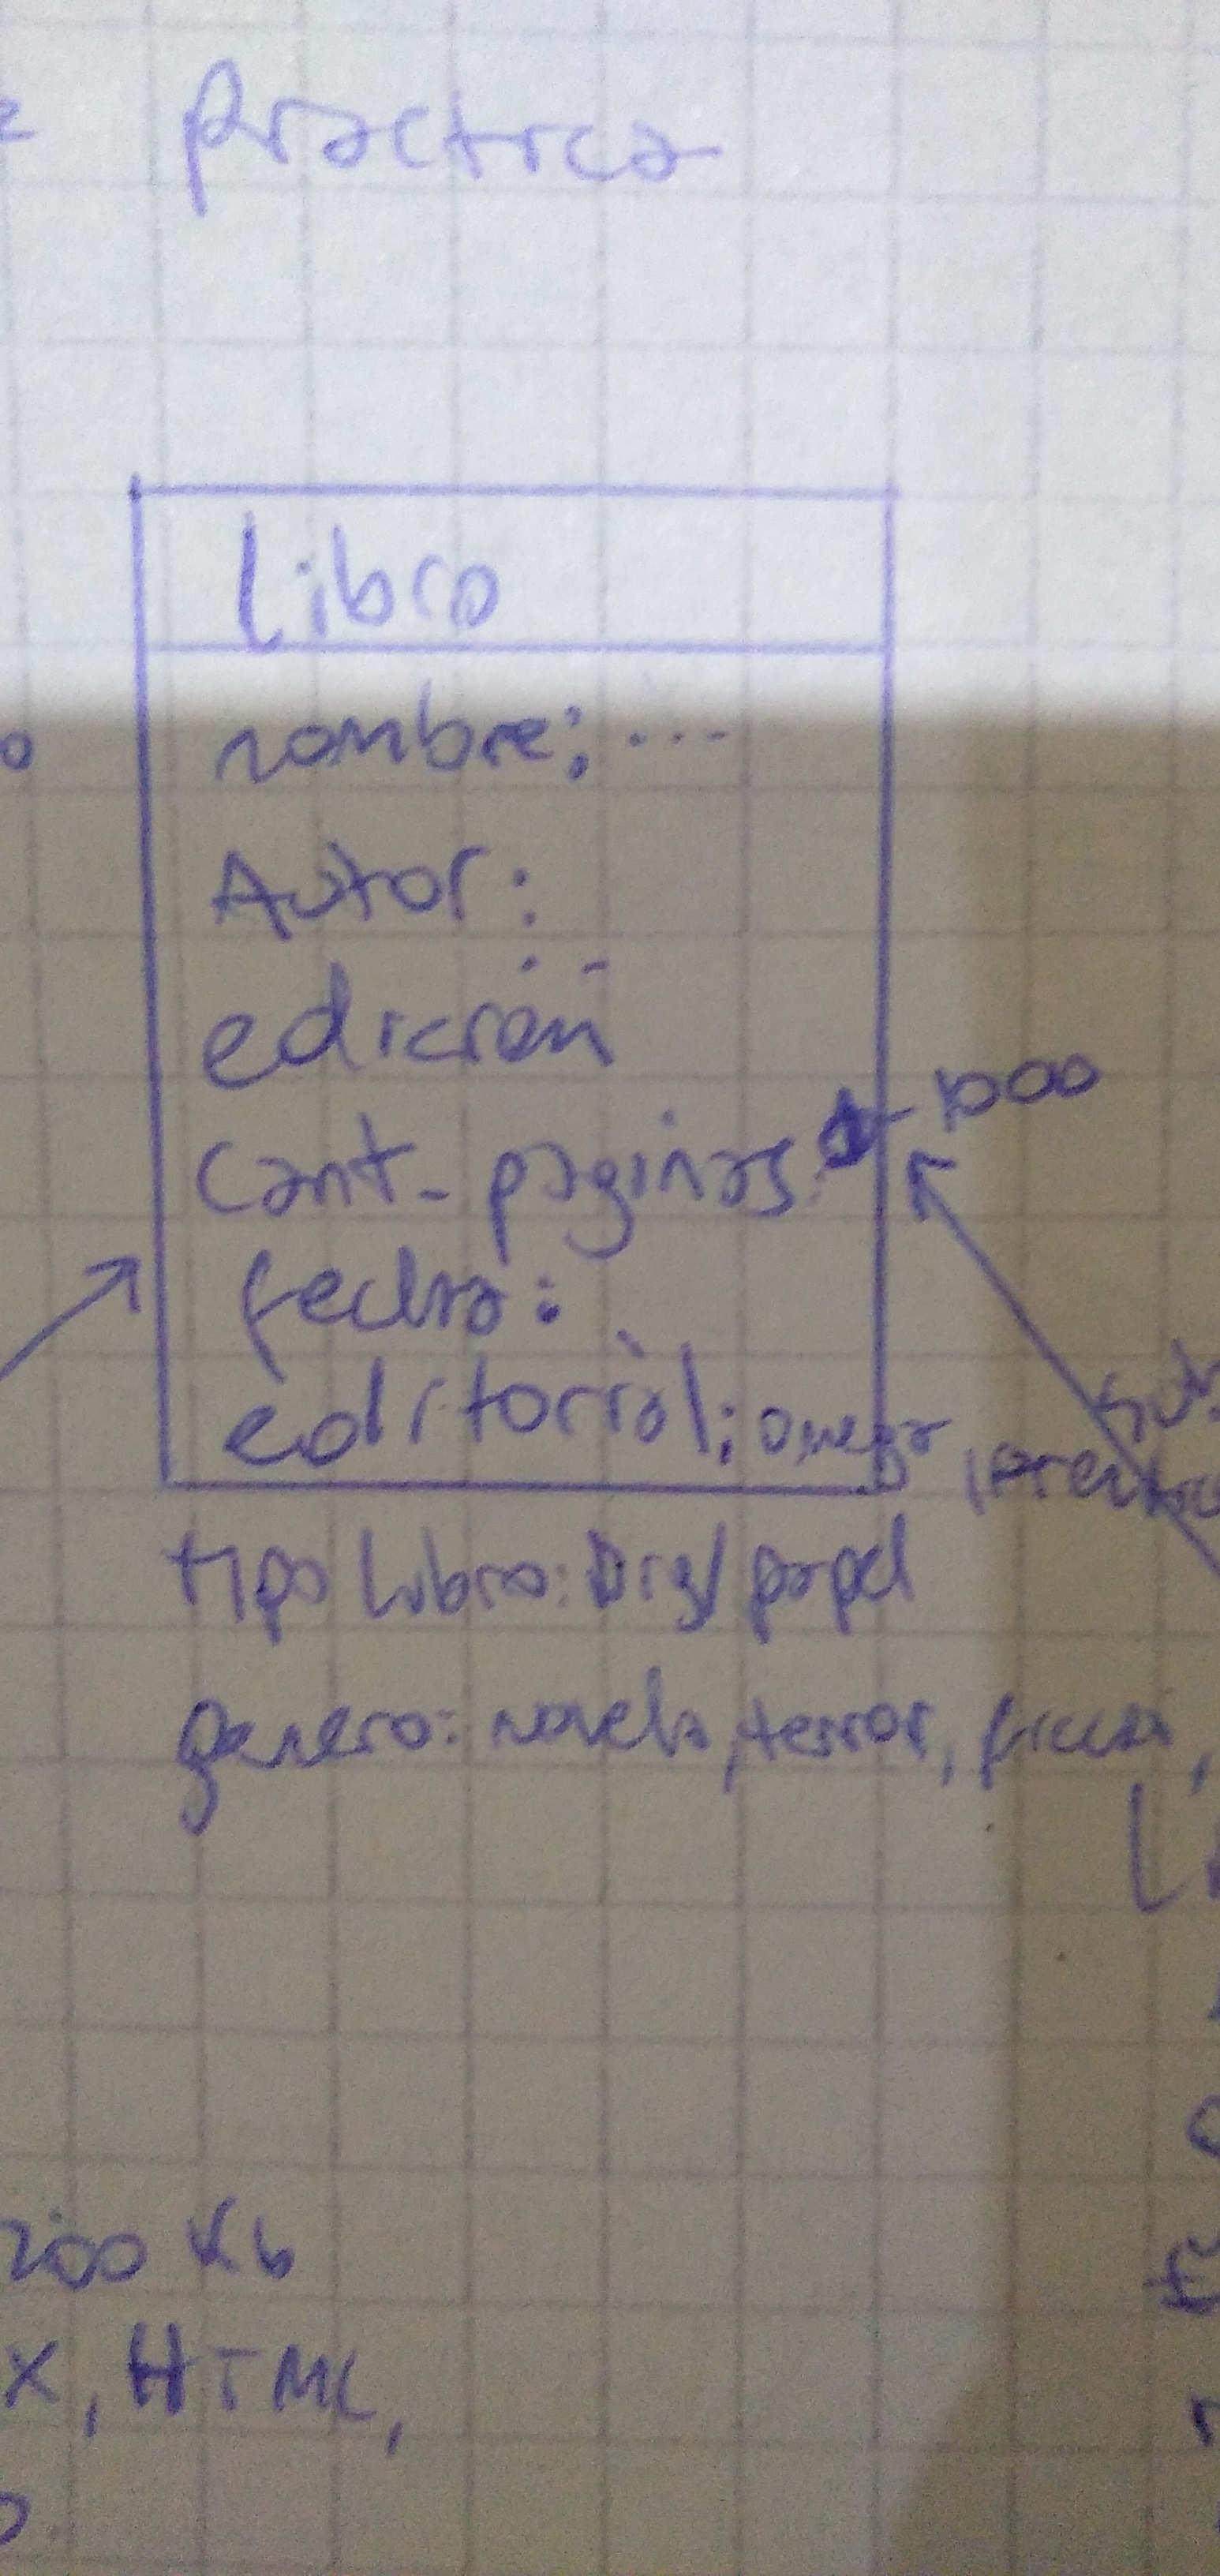 Practica
Libro
nombre: ...
Autor:
edición
Cant_paginas: 1-1000
fecha:
editorial: omega
tipo Libro: Dig/papel
genero: novela, terror, ficcion,
200 Kb
X, HTML,